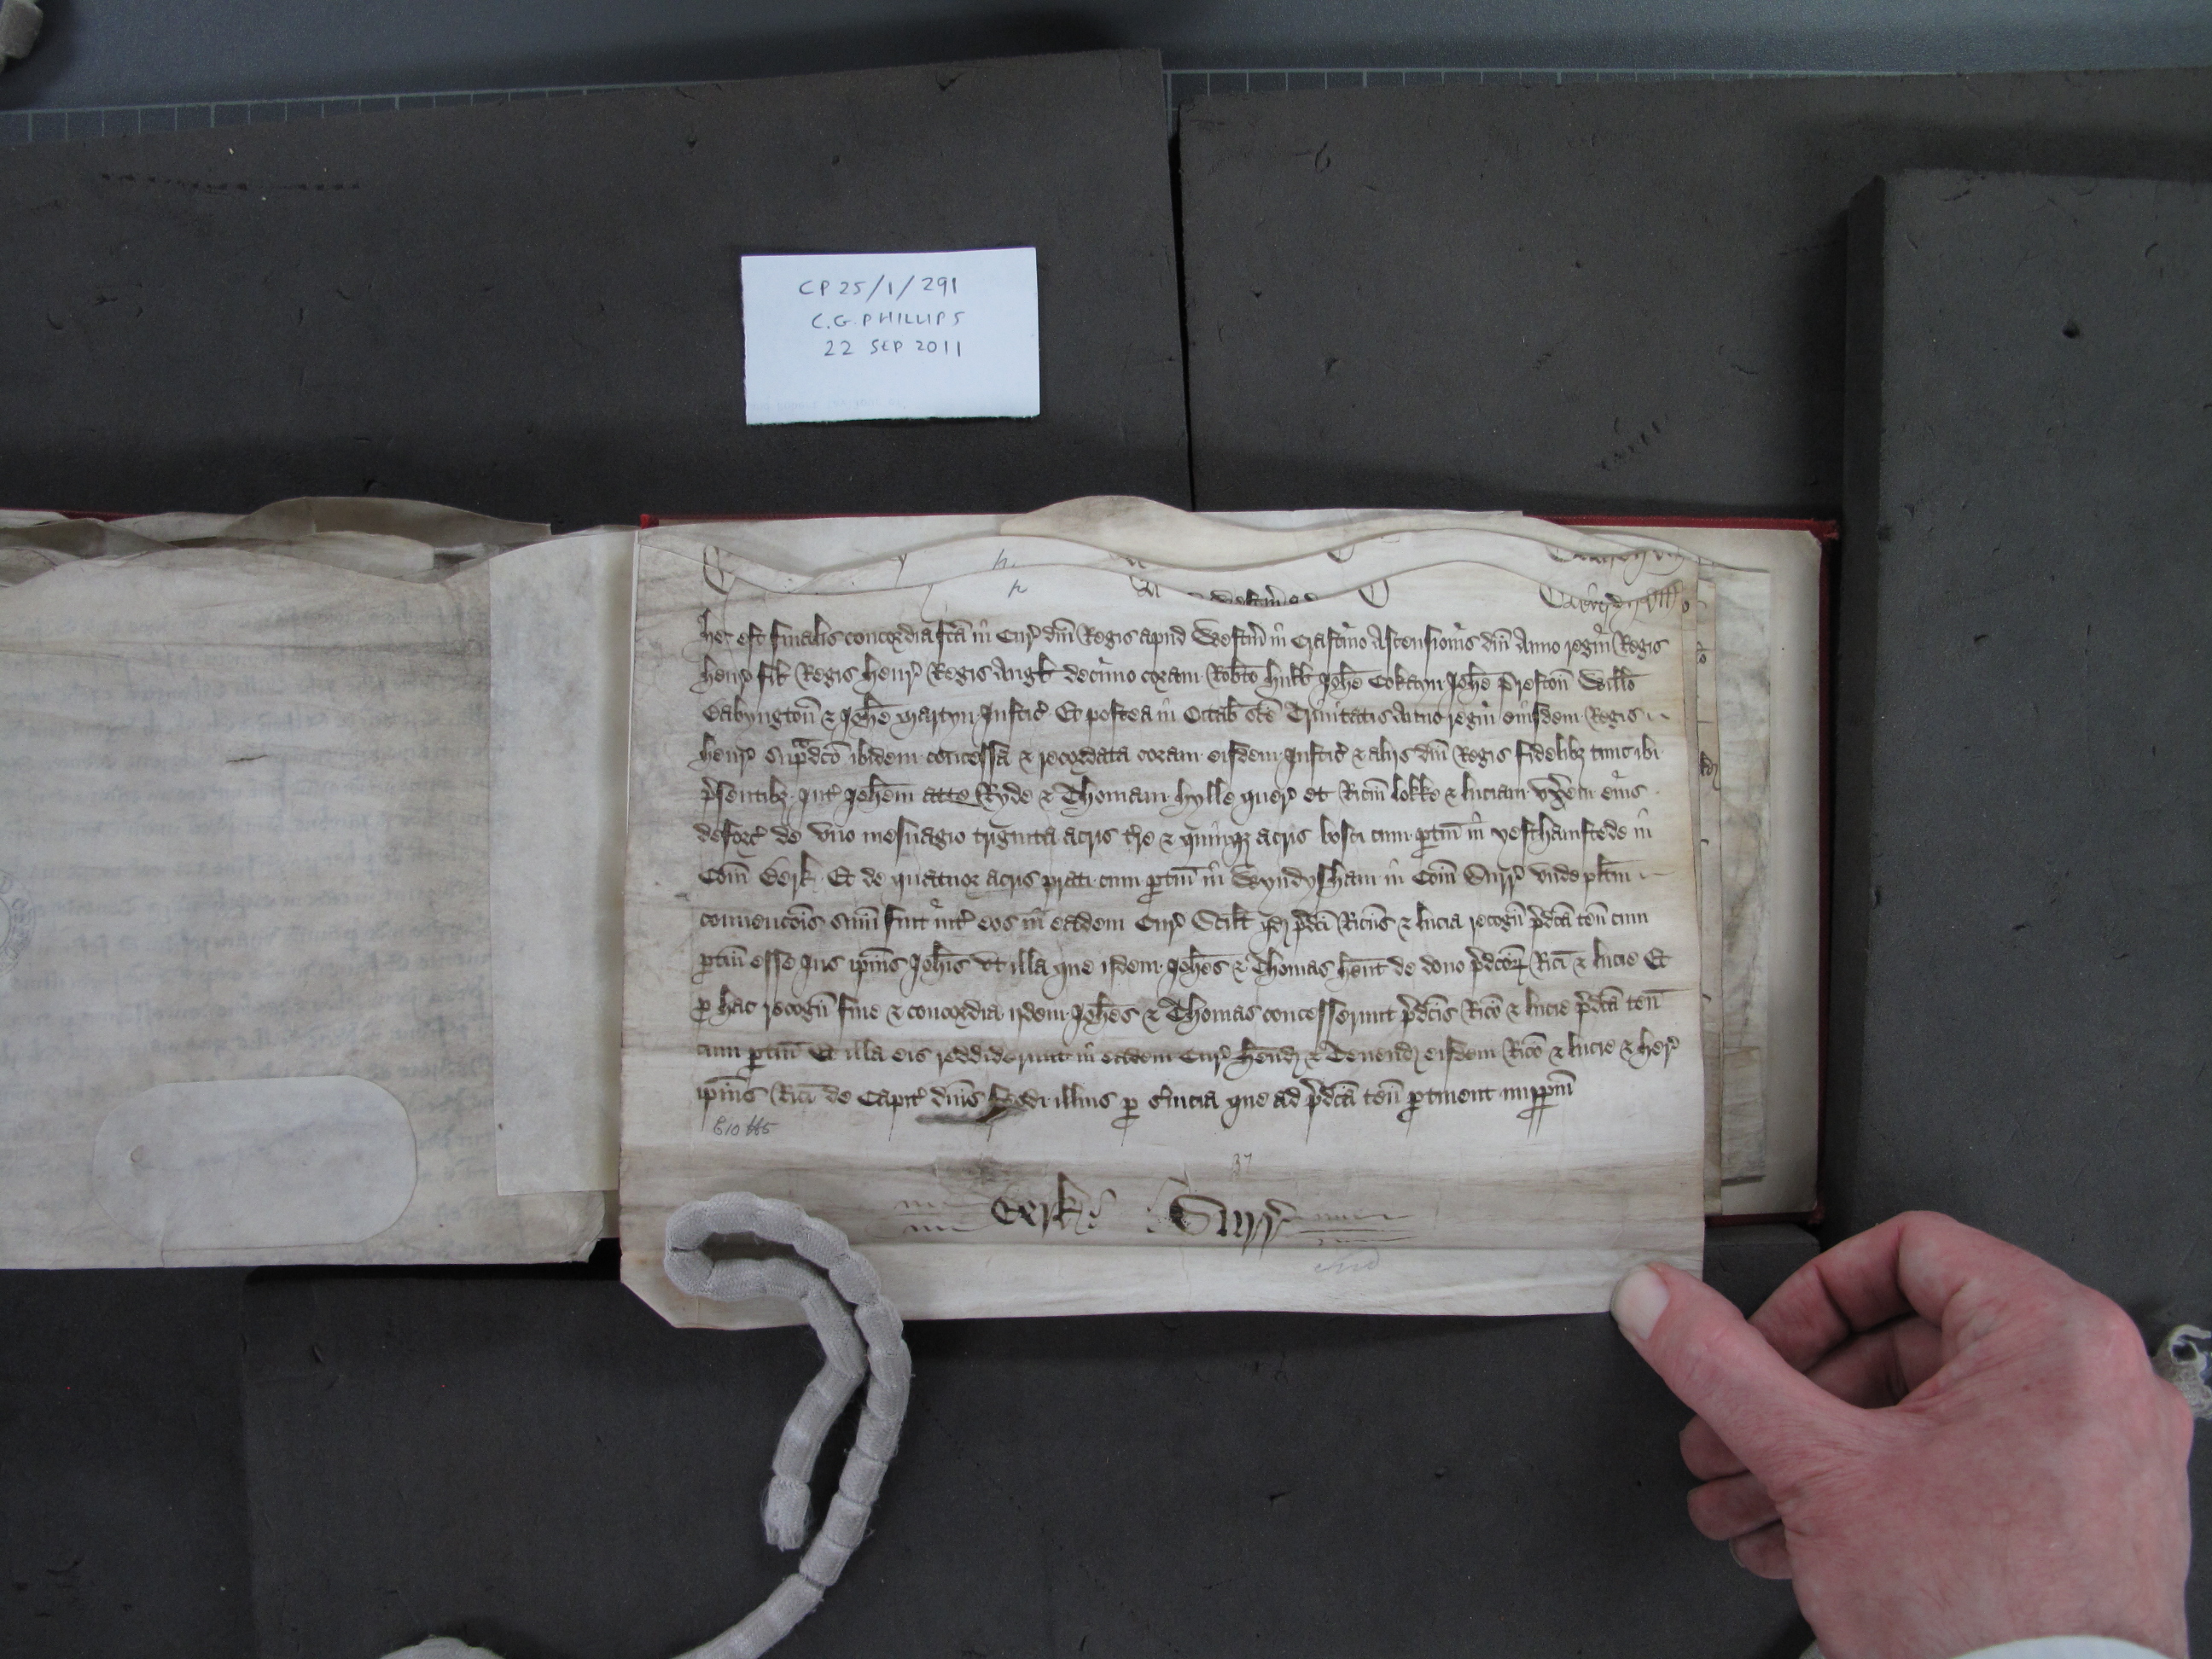 CP 25/1/291
C.G. PHILLIPS
22 SEP 2011
hec est finalis concordia fcā in Curˀ dnī Regis apud Westm̄ in Crastino Ascensionis dnī Anno regni Regis
henrˀ fil̄ Regis henrˀ Regis Angl̄ decimo coram Robt̄o hull̄ Joh̄e Cokayn Joh̄e Preston̄ Will̄o
Babyngton̄ & Joh̄e Martyn Justicˀ Et postea in Octab̄ sc̄e Trinitatis Anno regni eiusdem Regis
henrˀ supᵃdc̄o ibidem concessa & recordata coram eisdem Justicˀ & alijs dnī Regis fidelibȝ tunc ibi
p̄sentibȝ Intˀ Joh̄em atte Ryde & Thomam hylle querˀ et Ric̄m lokke & luciam vx̄em eius
deforcˀ de vno mesuagio triginta acris tr̄e & quinqȝ acris bosci cum ꝑtin̄ in yesthamstede in
Com̄ Berk Et de quatuor acris prati cum ꝑtin̄ in Wyndysham in Com̄ Surrˀ vnde pl̄itm
convenc̄ois sum̄ fuit intˀ eos in eadem Curˀ Scil̄t qd̄ p̄dc̄i Ric̄us & lucia recogn̄ p̄dc̄a ten̄ cum
ꝑtin̄ esse Jus ip̄ius Joh̄is vt illa que ijdem Joh̄es & Thomas hēnt de dono p̄dc̄oꝝ Ric̄i & lucie Et
ꝑ hac recogn̄ fine & concordia ijdem Joh̄es & Thomas concesserunt p̄dc̄is Ric̄o & lucie p̄dc̄a ten̄
cum ꝑtin̄ Et illa eis reddiderunt in eadem Curˀ hēnd̄ & Tenend̄ eisdem Ric̄o & lucie & herˀ
ip̄ius Ric̄i de Capitˀ dnīs feodi illius ꝑ s̄uicia que ad p̄dc̄a ten̄ ꝑtinent imꝑpm̄
37
Berkˀ Surrˀ